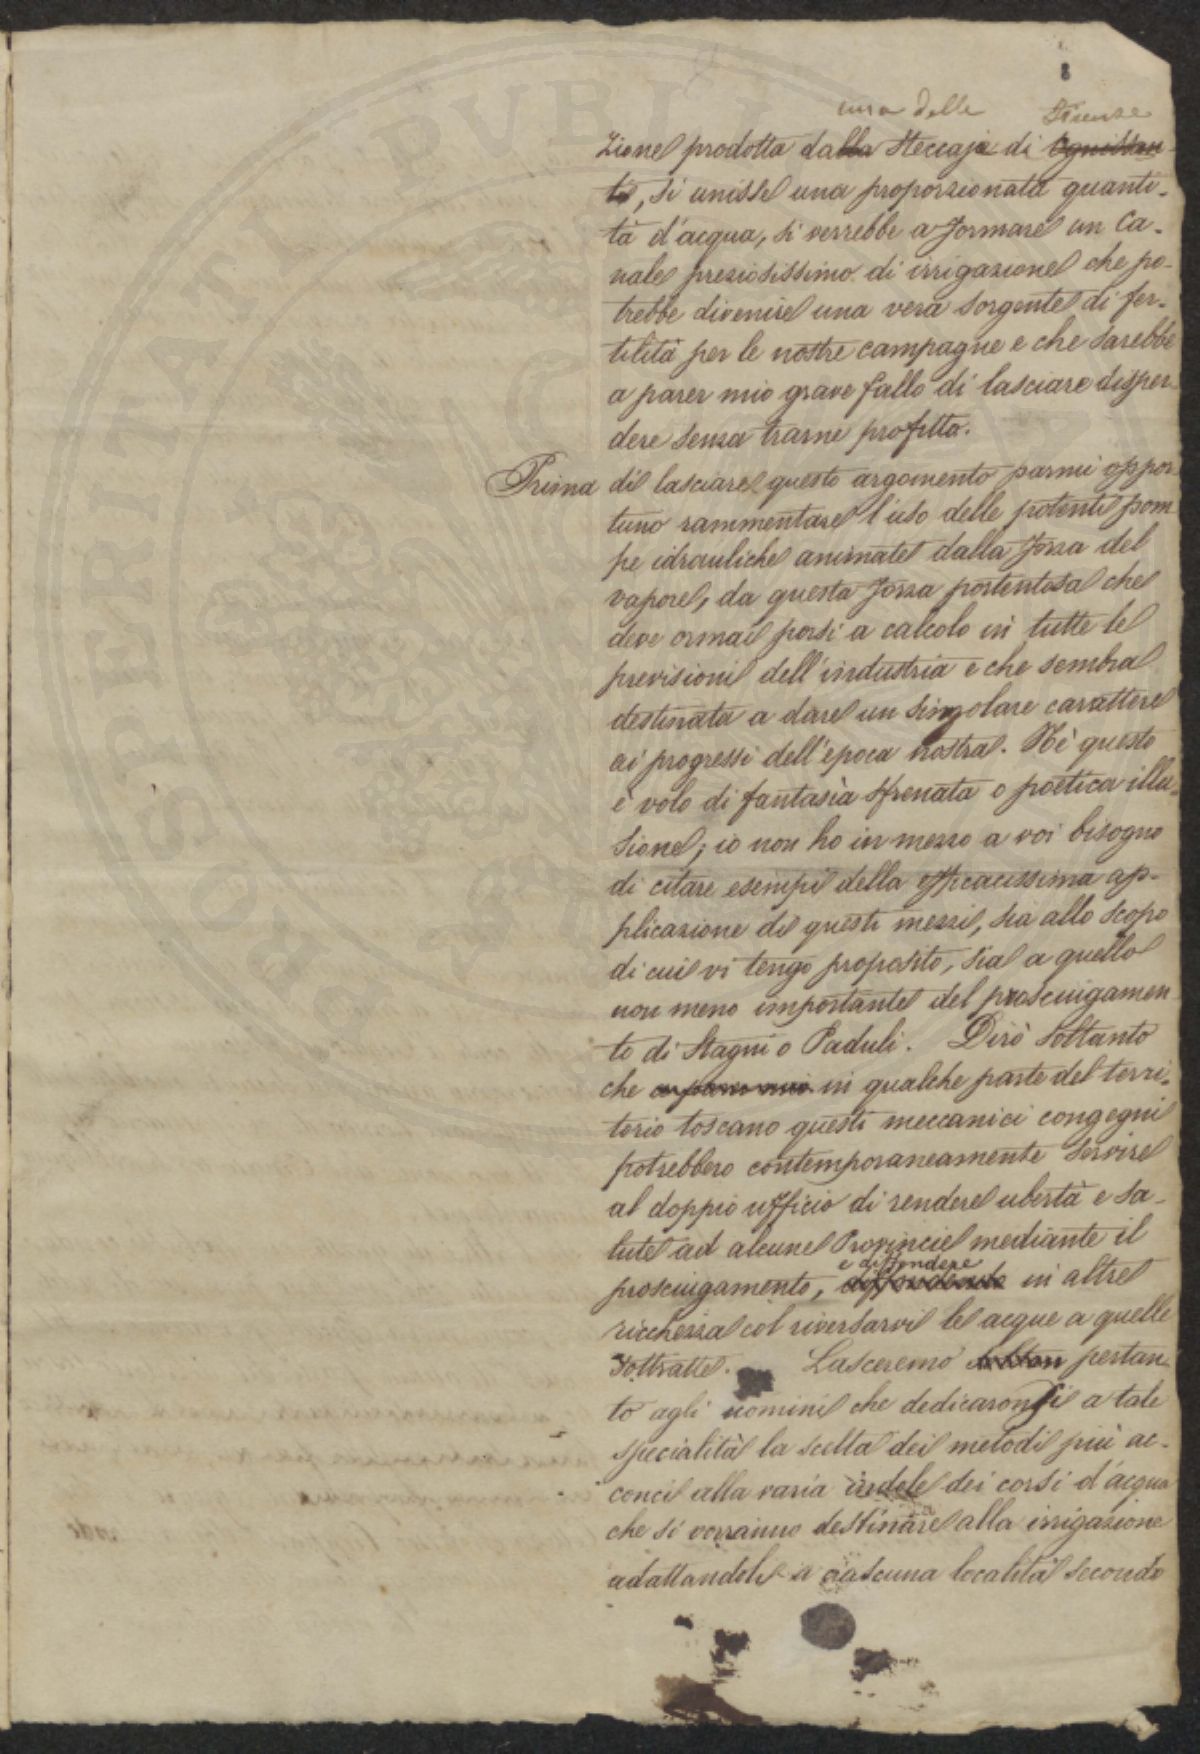 una delle Firenze
zione prodotta dalla Steccaja di Ognissan
ti, si unisse una proporzionata quanti-
tà d'acqua, si verrebbe a formare un Ca-
nale preziosissimo di irrigazione che po-
trebbe divenire una vera sorgente di fer-
tilità per le nostre campagne e che sarebbe
a parer mio grave fallo di lasciare disper-
dere senza trarne profitto.
Prima di lasciare questo argomento parmi oppor
tuno rammentare l'uso delle potenti pom
pe idrauliche animate dalla forza del
vapore, da questa forza portentosa che
deve ormai porsi a calcolo in tutte le
previsioni dell'industria e che sembra
destinata a dare un singolare carattere
ai progressi dell'epoca nostra. Nè questo
è volo di fantasìa sfrenata o poetica illu-
sione; io non ho in mezzo a voi bisogno
di citare esempi della efficacissima ap-
plicazione di questi mezzi, sia allo scopo
di cui vi tengo proposito, sia a quello
non meno importante del prosciugamen
to di Stagni o Paduli. Dirò soltanto
che a parer mio in qualche parte del terri-
torio toscano questi meccanici congegni
potrebbero contemporaneamente servire
al doppio ufficio di rendere ubertà e sa-
lute ad alcune Provincie mediante il
e diffondere
prosciugamento, diffondendo in altre
ricchezza col riversarvi le acque a quelle
sottratte. Lasceremo pertan
to agli uomini che dedicaronsi a tale
specialità la scelta dei metodi più ac-
conci alla varia indole dei corsi d'acqua
che si vorranno destinare alla irrigazione
adattandoli a ciascuna località secondo